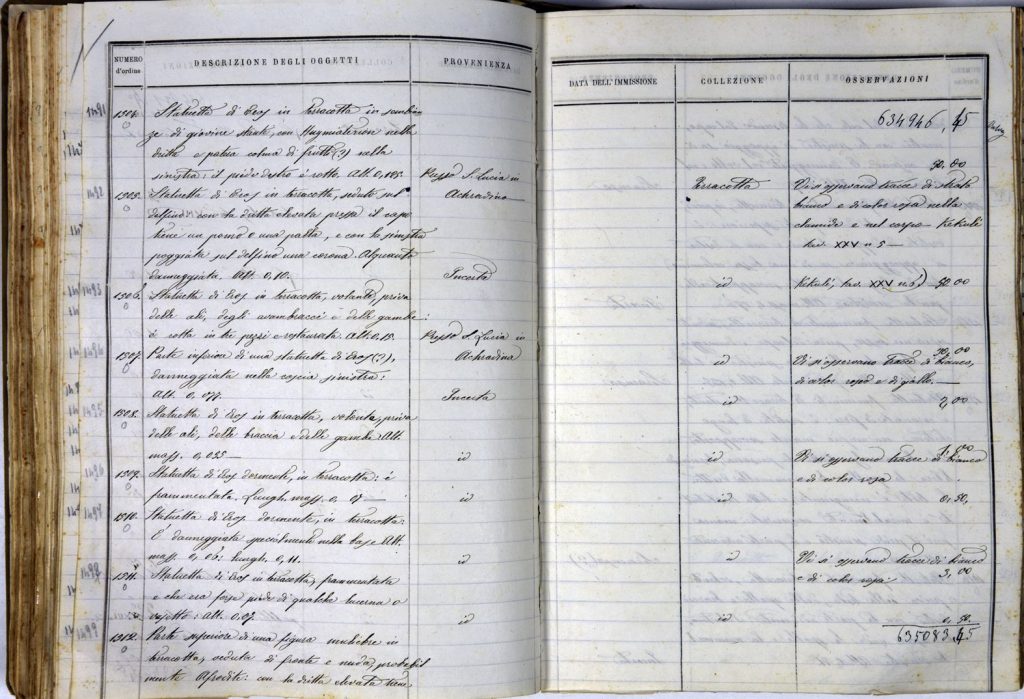 NUMERO d'ordine
DESCRIZIONE DEGLI OGGETTI
PROVENIENZA
1504.
Statuetta di Eros in terracotta in sembian
ze di giovine stante, con
dritta e patera colma di frutti (?) nella
sinistra: il piede destro è rotto. Alt. 0,185.
Presso S. Lucia in
Achradina
1505.
Statuetta di Eros in terracotta, seduto sul
delfino con la dritta elevata presso il capo
tiene un pomo o una palla, e con la sinistra
poggiata sul delfino una corona. Alquanto
danneggiata. Alt. 0,10.
Incerta
1506.
Statuetta di Eros in terracotta, volante, priva
delle ali, degli avambracci e delle gambe:
è rotta in tre pezzi e restaurata. Alt. 0,15.
Presso S. Lucia in
Achradina
1507.
Parte inferiore di una statuetta di Eros (?),
danneggiata nella coscia sinistra:
Alt. 0,077.
Incerta
1508.
Statuetta di Eros in terracotta, volante, priva
delle ali, delle braccia e delle gambe. Alt.
mass. 0,095 —
id
1509.
Statuetta di Eros dormente, in terracotta: è
frammentata. Lungh. mass. 0,07 —
id
1510.
Statuetta di Eros dormente, in terracotta.
È danneggiata specialmente nella base. Alt.
mass. 0,06: lungh. 0,11.
id
1511.
Statuetta di Eros in terracotta, frammentata
e che era forse piede di qualche lucerna o
vasetto: Alt. 0,07.
id
1512.
Parte superiore di una figura muliebre in
terracotta, veduta di fronte e nuda, probabil
mente Afrodite: con la dritta elevata tiene
DATA DELL'IMMISSIONE
COLLEZIONE
OSSERVAZIONI
634946,45
50.00
Terracotta
Vi si osservano tracce di
bianco e di color rosa nella
clamide e nel corpo — Kekulé
tav. XXV n 5 —
id
Kekulé, tav. XXV n. 6)
50.00
30,00
id
Vi si osservano tracce di bianco,
di color rosa e di giallo. —
id
2,00
1,00
id
Vi si osservano tracce di bianco
e di color rosa
id
0,50,
id
Vi si osservano tracce di bianco
e di color rosa.
3,00
id
0,50.
635083,45